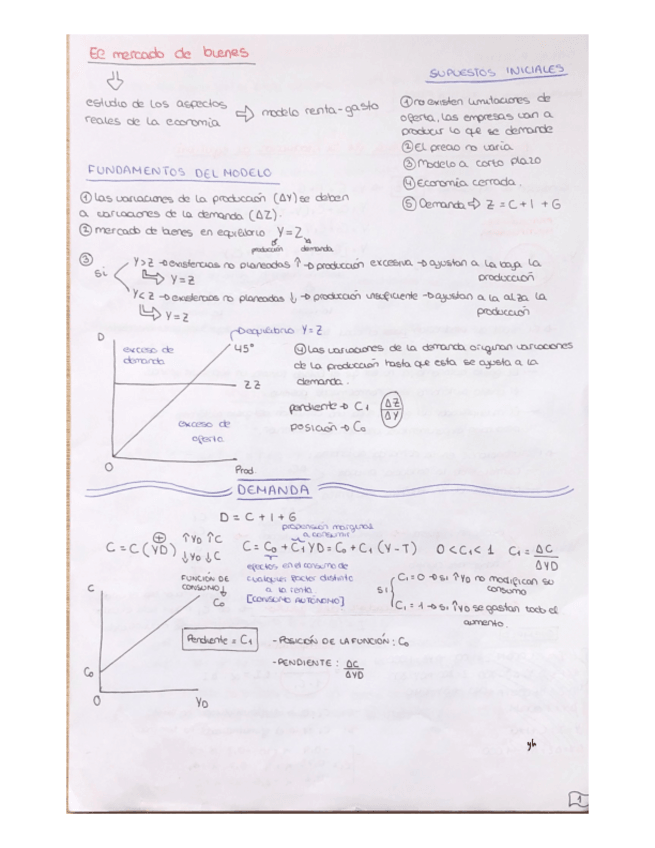 El mercado de bienes
estudio de los aspectos
reales de la economía
⇨ modelo renta-gasto
SUPUESTOS INICIALES
① no existen limitaciones de
oferta, las empresas van a
producir lo que se demande
② El precio no varía
③ Modelo a corto plazo
④ Economía cerrada.
⑤ Demanda ⇨ Z = C + I + G
FUNDAMENTOS DEL MODELO
① Las variaciones de la producción (ΔY) se deben
a variaciones de la demanda (ΔZ).
② mercado de bienes en equilibrio Y = Z
producción demanda
③ Si
Y > Z → existencias no planeadas ↑ → producción excesiva → ajustan a la baja la
producción
Y = Z
Y < Z → existencias no planeadas ↓ → producción insuficiente → ajustan a la alza la
producción
Y = Z
D
equilibrio Y = Z
45°
exceso de
demanda
ZZ
exceso de
oferta
O
Prod.
④ Las variaciones de la demanda originan variaciones
de la producción hasta que esta se ajusta a la
demanda.
pendiente → C₁ ΔZ/ΔY
posición → C₀
DEMANDA
D = C + I + G
propensión marginal
a consumir
C = C (YD) ⊕ ↑YD ↑C
↓YD ↓C
C = C₀ + C₁ YD = C₀ + C₁ (Y - T)
0 < C₁ < 1
C₁ = ΔC/ΔYD
efectos en el consumo de
cualquier factor distinto
a la renta.
[CONSUMO AUTÓNOMO]
Si
C₁ = 0 → si ↑YD no modifican su
consumo
C₁ = 1 → si ↑YD se gastan todo el
aumento.
C
FUNCIÓN DE
CONSUMO ↓
C₀
C₀
O
YD
Pendiente = C₁
- POSICIÓN DE LA FUNCIÓN: C₀
- PENDIENTE: ΔC/ΔYD
1